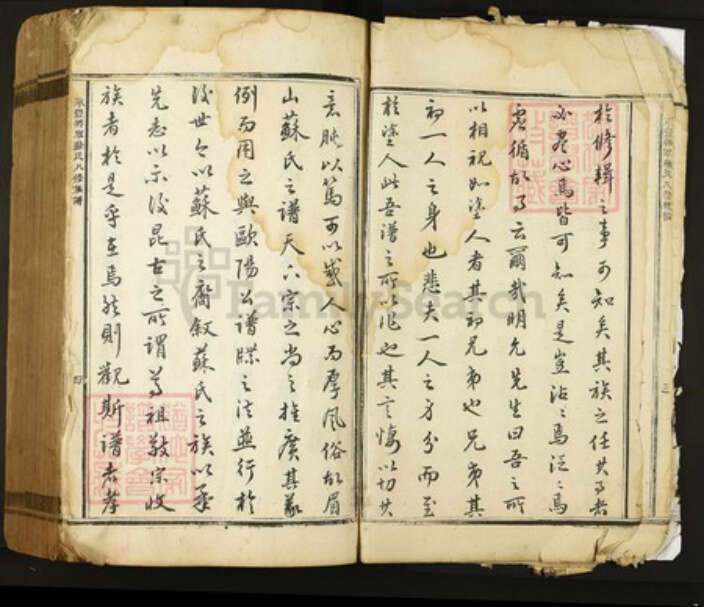 於修輯之事可知矣其族之任其事者
必盡心焉皆可知矣是豈沾沾焉泛泛焉
虛循故事云爾哉明允先生曰吾之所
以相視如塗人者其初兄弟也兄弟其
初一人之身也悲夫一人之身分而至
於塗人此吾譜之所以作也其言悽以切其
意眇以篤可以感人心而厚風俗故眉
山蘇氏之譜天下宗之尚之推廣其義
例而用之與歐陽公譜牒之法並行於
後世今以蘇氏之裔敘蘇氏之族以承
先志以示後昆古之所謂尊祖敬宗收
族者於是乎在焉然則觀斯譜者孝
三
四
FamilySearch